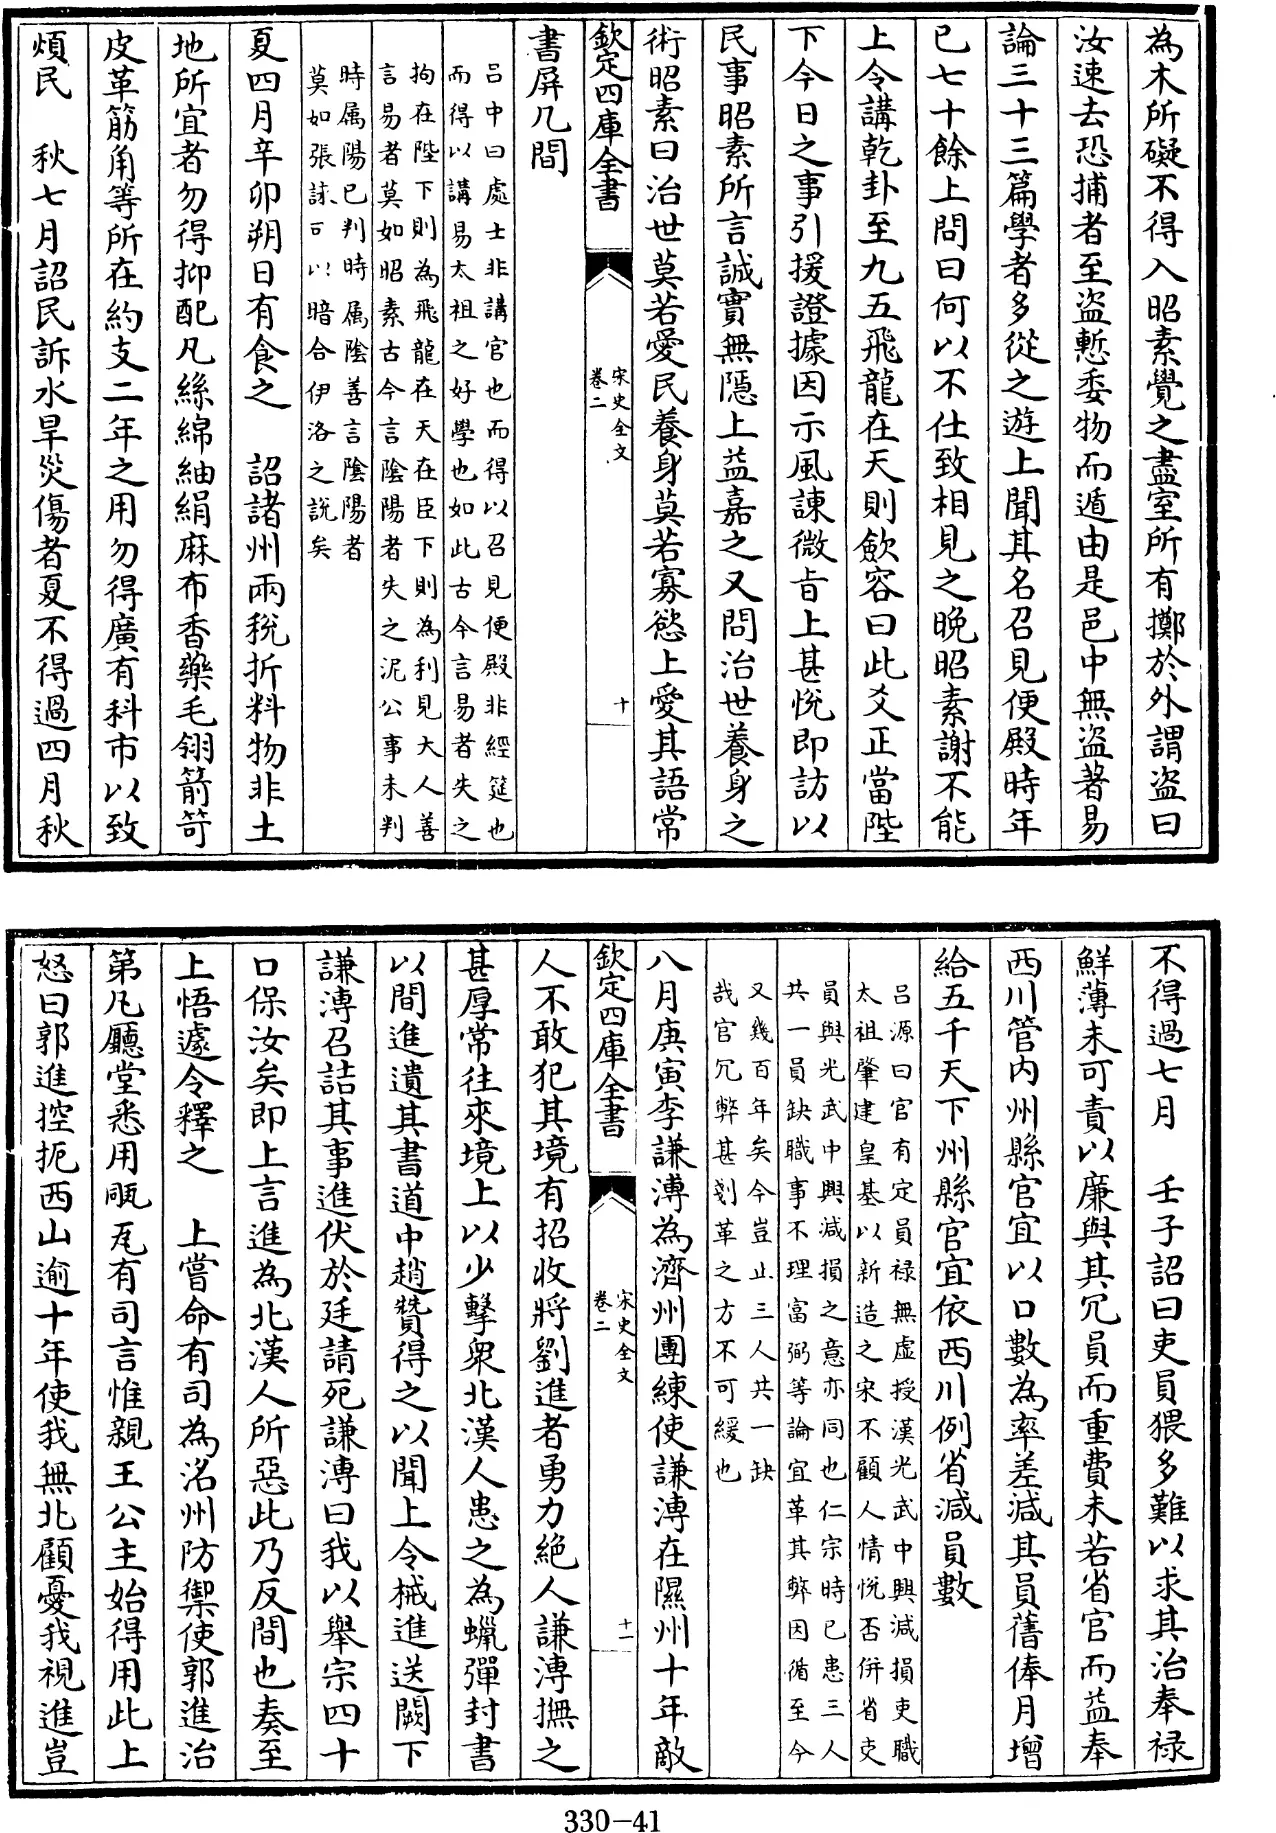 為木所礙不得入昭素覺之盡室所有擲於外謂盜曰
汝速去恐捕者至盜慙委物而遁由是邑中無盜著易
論三十三篇學者多從之遊上聞其名召見便殿時年
已七十餘上問曰何以不仕致相見之晚昭素謝不能
上令講乾卦至九五飛龍在天則歛容曰此爻正當陛
下今日之事引援證據因示風諫微旨上甚悅即訪以
民事昭素所言誠實無隱上益嘉之又問治世養身之
術昭素曰治世莫若愛民養身莫若寡慾上愛其語常
欽定四庫全書 宋史全文 卷二 十
書屏几間
呂中曰處士非講官也而得以召見便殿非經筵也
而得以講易太祖之好學也如此古今言易者失之
拘在陛下則為飛龍在天在臣下則為利見大人善
言易者莫如昭素古今言陰陽者失之泥公事未判
時属陽已判時属陰善言陰陽者
莫如張詠可以暗合伊洛之說矣
夏四月辛卯朔日有食之 詔諸州兩稅折科物非土
地所宜者勿得抑配凡絲綿紬絹麻布香藥毛翎箭笴
皮革筋角等所在約支二年之用勿得廣有科市以致
煩民 秋七月詔民訴水旱災傷者夏不得過四月秋
不得過七月 壬子詔曰吏員猥多難以求其治奉禄
鮮薄未可責以廉與其冗員而重費未若省官而益奉
西川管内州縣官宜以口數為率差減其員舊俸月增
給五千天下州縣官宜依西川例省減員數
呂源曰官有定員禄無虚授漢光武中興減損吏職
太祖肇建皇基以新造之宋不顧人情悅否併省吏
員與光武中興減損之意亦同也仁宗時已患三人
共一員缺職事不理富弼等論宜革其弊因循至今
又幾百年矣今豈止三人共一缺
哉官冗弊甚剗革之方不可緩也
八月庚寅李謙溥為濟州團練使謙溥在隰州十年敵
欽定四庫全書 宋史全文 卷二 十一
人不敢犯其境有招收將劉進者勇力絶人謙溥撫之
甚厚常往來境上以少擊衆北漢人患之為蠟彈封書
以間進遺其書道中趙贊得之以聞上令械進送闕下
謙溥召詰其事進伏於廷請死謙溥曰我以舉宗四十
口保汝矣即上言進為北漢人所惡此乃反間也奏至
上悟遽令釋之 上嘗命有司為洺州防禦使郭進治
第凡廳堂悉用瓪瓦有司言惟親王公主始得用此上
怒曰郭進控扼西山逾十年使我無北顧憂我視進豈
330-41